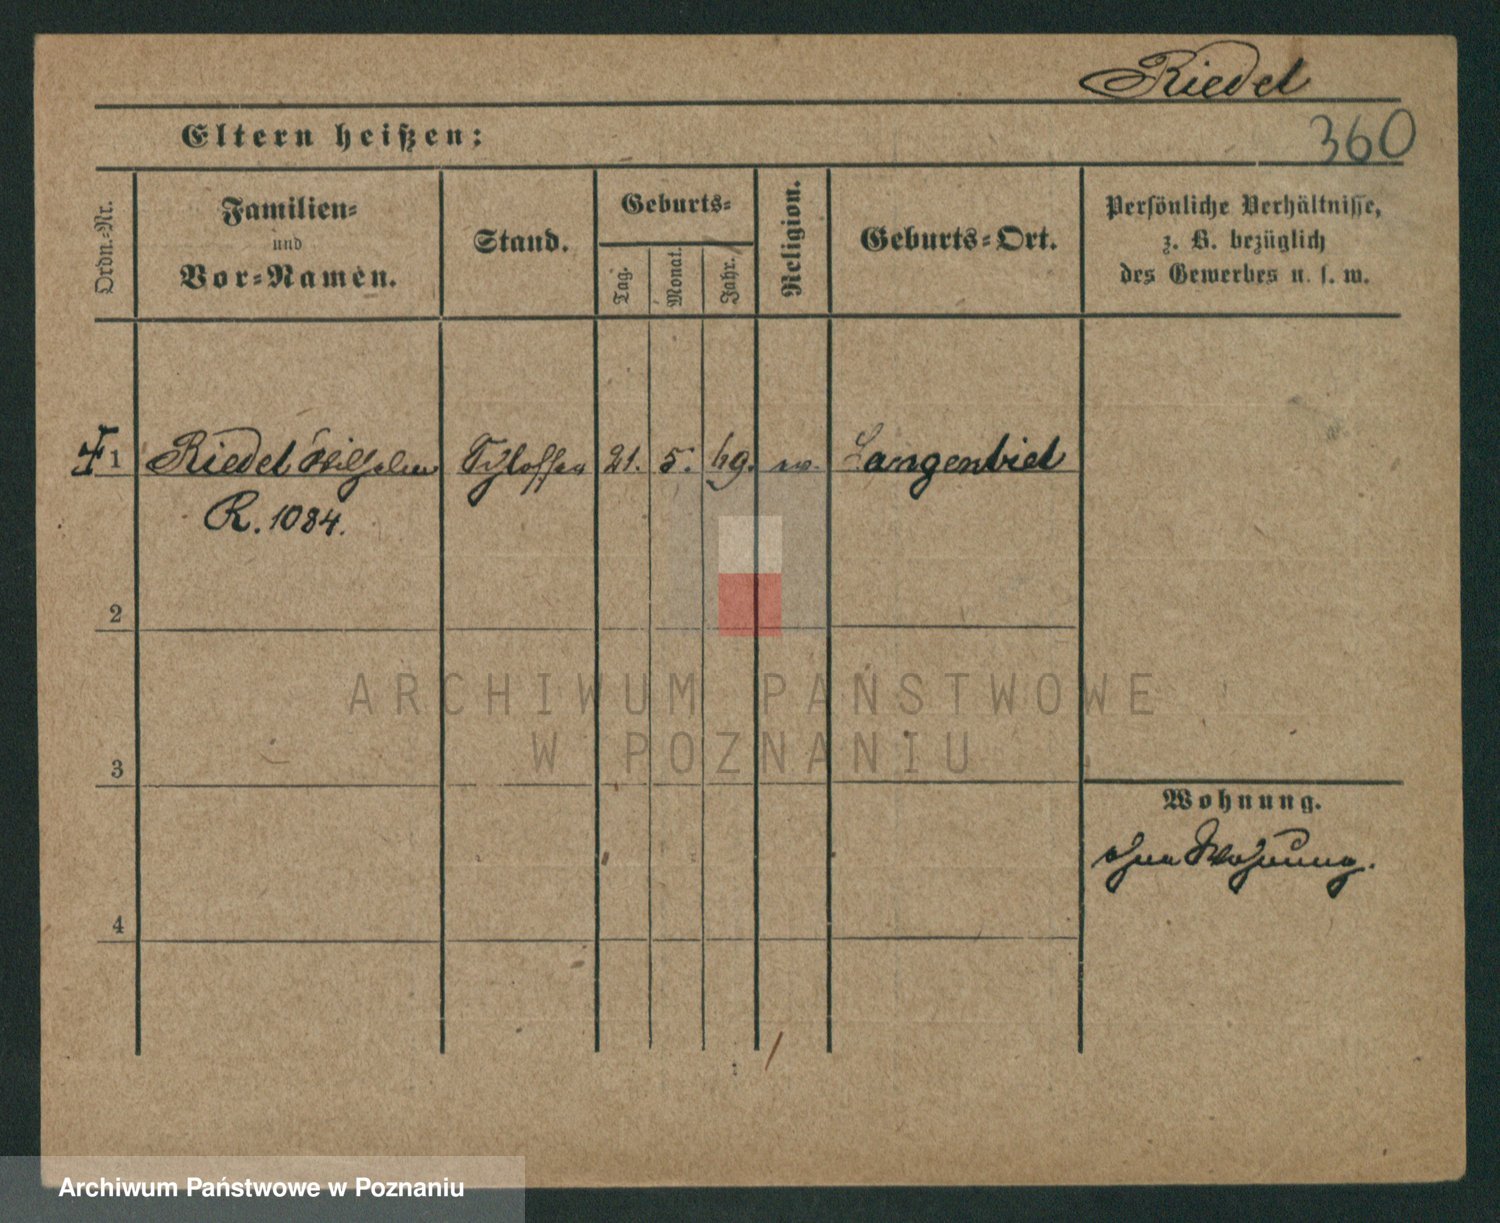 Riedel
360
Eltern heißen:
Ordn.-Nr.
Familien-
und
Vor-Namen.
Stand.
Geburts-
Tag.
Monat.
Jahr.
Religion.
Geburts-Ort.
Persönliche Verhältnisse,
z. B. bezüglich
des Gewerbes u. s. w.
1 Riedel Wilhelm Schlosser 21. 5. 49. ev. Langenbiel
R. 1084.
2
ARCHIWUM PAŃSTWOWE
W POZNANIU
3
Wohnung.
ohne Wohnung.
4
Archiwum Państwowe w Poznaniu